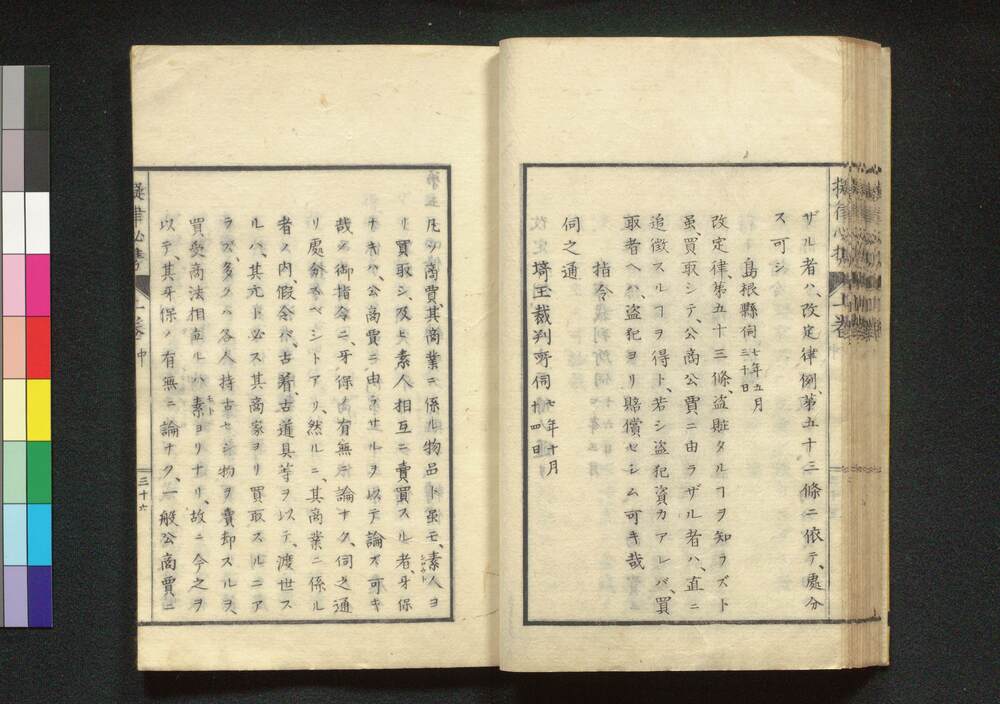 ザル者ハ、改定律例第五十三條ニ依テ、處分
ス可シ
島根縣伺 七年五月三十日
改定律、第五十三條、盗賍タルヿヲ知ラズト
虽、買取シテ、公商公賈ニ由ラザル者ハ、直ニ
追徴スルヿヲ得ト、若シ盗犯資カアレバ、買
取者ヘハ、盗犯ヨリ賠償セシム可キ哉
指令
伺之通
埼玉裁判所伺 七年十月十四日
凡ソ商賈、其商業ニ係ル物品ト虽モ、素人ヨ
リ買取シ、及ヒ素人相互ニ賣買スル者、牙保
ナキハ、公商賈ニ由ラサルヲ以テ論ズ可キ
哉ノ御指令ニ、牙保ノ有無ニ論ナク、伺之通
リ處分スベシトアリ、然ルニ、其商業ニ係ル
者ノ内、假令ハ、古着、古道具等ヲ以テ、渡世ス
ルハ、其元ト必ス其商家ヨリ買取スルニア
ラズ、多クハ各人持古セシ物ヲ賣却スルヲ、
買受商法相立ルハ素ヨリナリ、故ニ今之ヲ
以テ、其牙保ノ有無ニ論ナク、一般公商賈ニ
擬律必携
上巻
中
三十六